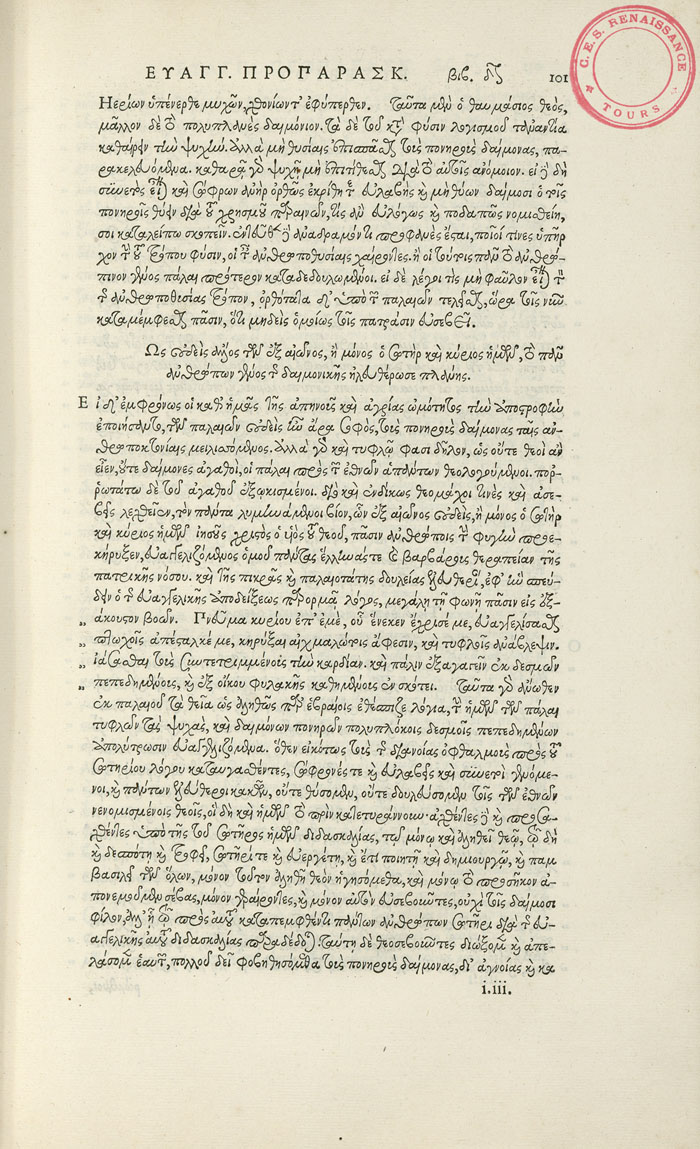 C.E.S. RENAISSANCE
TOURS
ΕΥΑΓΓ. ΠΡΟΠΑΡΑΣΚ. βιβ. δ΄. 101
Ἠερίων ὑπένερθε μυχῶν, χθονίων τ' ἐφύπερθεν. Ταῦτα μὲν ὁ θαυμάσιος θεὸς,
μᾶλλον δὲ τὸ πολυπλανὲς δαιμόνιον. τὰ δὲ τοῦ κατὰ φύσιν λογισμοῦ τἀναντία
καθαίρειν τὴν ψυχὴν. ἀλλὰ μὴ θυσίαις σπᾶσθαι τοὺς πονηροὺς δαίμονας, πα-
ρακελευόμενα. καθαρᾷ γὰρ ψυχῇ μὴ ἐπιτίθεσθαι διὰ τὸ αὐτοῖς ἀνόμοιον. εἰ δὲ δὴ
συνετὸς εἶναι καὶ σώφρων ἀνὴρ ὀρθῶς ἐκρίθη τε εὐλαβὴς καὶ μὴ θύων δαίμοσι ὁ τοῖς
πονηροῖς θύειν διὰ τοῦ χρησμοῦ παραινῶν, τίς ἂν εὐλόγως καὶ ποδαπὸς νομισθείη,
σοι καταλείπω σκοπεῖν. ἐντεῦθεν δὲ ἀναδραμόντι προφανὲς ἔσται, ποῖοί τινες ὑπῆρ-
χον τὴν τοῦ τρόπου φύσιν, οἱ ταῖς ἀνθρωποθυσίαις χαίροντες. ἢ οἱ τούτοις πᾶν τὸ ἀνθρώ-
πινον γένος πάλαι πρότερον καταδεδουλωμένοι. εἰ δὲ λέγοι τὶς μὴ φαῦλον εἶναι τὸν
τῆς ἀνθρωποθυσίας τρόπον, ὀρθότατα δ' ὑπὸ τῶν παλαιῶν τελεῖσθαι, ὥρα τοῖς νῦν
καταμέμφεσθαι πᾶσιν, ὅτι μηδεὶς ὁμοίως τοῖς πατράσιν εὐσεβεῖ.
Ὡς οὐδεὶς ἄλλος τῶν ἐξ αἰῶνος, ἢ μόνος ὁ σωτὴρ καὶ κύριος ἡμῶν, τὸ πᾶν
ἀνθρώπων γένος τῆς δαιμονικῆς ἠλευθέρωσε πλάνης.
Ει δ' ἐμφρόνως οἱ καθ' ἡμᾶς τῆς ἀπηνοῦς καὶ ἀγρίας ὠμότητος τὴν ἀποστροφὴν
ἐποιήσαντο, τῶν παλαιῶν οὐδεὶς ἦν ἄρα σοφὸς, τοὺς πονηροὺς δαίμονας ταῖς ἀν-
θρωποκτονίαις μειλισσόμενος. ἀλλὰ γὰρ καὶ τυφλῷ φασι δῆλον, ὡς οὔτε θεοὶ ἂν
εἶεν, οὔτε δαίμονες ἀγαθοὶ, οἱ πάλαι πρὸς τῶν ἐθνῶν ἁπάντων θεολογούμενοι. πορ-
ρωτάτω δὲ τοῦ ἀγαθοῦ ἐξῳκισμένοι. διὸ καὶ ἐνδίκως θεομάχοι τινὲς καὶ ἀσε-
βεῖς λεχθεῖεν, τὸν πάντα λυμηνάμενοι βίον, ὧν ἐξ αἰῶνος οὐδεὶς, ἢ μόνος ὁ σωτὴρ
καὶ κύριος ἡμῶν ἰησοῦς χριστὸς ὁ υἱὸς τοῦ θεοῦ, πᾶσιν ἀνθρώποις τὴν φυγὴν προεκ-
κήρυξεν, εὐαγγελιζόμενος ὁμοῦ πάντας ἕλληνάς τε καὶ βαρβάρους θεραπείαν τῆς
πατρικῆς νόσου. καὶ τῆς πικρᾶς καὶ παλαιοτάτης δουλείας ἐλευθερίαν, ἐφ' ἣν σπεύ-
δειν ὁ τῆς εὐαγγελικῆς ἀποδείξεως παρορμᾷ λόγος, μεγάλῃ τῇ φωνῇ πᾶσιν εἰς ἐξ-
άκουστον βοῶν. Πνεῦμα κυρίου ἐπ' ἐμὲ, οὗ ἕνεκεν ἔχρισέ με, εὐαγγελίσασθαι
„ πτωχοῖς ἀπέσταλκέ με, κηρῦξαι αἰχμαλώτοις ἄφεσιν, καὶ τυφλοῖς ἀνάβλεψιν.
„ ἰάσασθαι τοὺς συντετριμμένους τὴν καρδίαν. καὶ πάλιν ἐξαγαγεῖν ἐκ δεσμῶν
„ πεπεδημένους, καὶ ἐξ οἴκου φυλακῆς καθημένους ἐν σκότει. Ταῦτα γὰρ ἄνωθεν
ἐκ παλαιοῦ τὰ θεῖα ὡς ἀληθῶς παρ' ἑβραίοις ἐθέσπιζε λόγια, τὴν ἡμῶν τῶν πάλαι
τυφλῶν τὰς ψυχὰς, καὶ δαιμόνων πονηρῶν πολυπλόκοις δεσμοῖς πεπεδημένων
ἀπολύτρωσιν εὐαγγελιζόμενα. ὅθεν εἰκότως τοὺς τῆς διανοίας ὀφθαλμοὺς πρὸς τοῦ
σωτηρίου λόγου καταυγασθέντες, σώφρονές τε καὶ εὐλαβεῖς καὶ συνετοὶ γενόμε-
νοι, καὶ πάντων ἐλεύθεροι κακῶν, οὔτε θύσομεν, οὔτε δουλεύσομεν τοῖς τῶν ἐθνῶν
νενομισμένοις θεοῖς, οἳ δὴ καὶ ἡμῶν τὸ πρὶν κατετυράννουν. ἀχθέντες δὲ καὶ προσα-
χθέντες ὑπὸ τῆς τοῦ σωτῆρος ἡμῶν διδασκαλίας, τῷ μόνῳ καὶ ἀληθεῖ θεῷ, ᾧ δὴ
καὶ δεσπότῃ καὶ τροφεῖ, σωτῆρί τε καὶ εὐεργέτῃ, καὶ ἔτι ποιητῇ καὶ δημιουργῷ, καὶ παμ
βασιλεῖ τῶν ὅλων, μόνον τοῦτον ἀληθῆ θεὸν ἡγησόμεθα, καὶ μόνῳ τὸ προσῆκον ἀ-
πονεμοῦμεν σέβας, μόνον γεραίροντες, καὶ μόνον αὐτὸν εὐσεβοῦντες, οὐχὶ τοῖς δαίμοσι
φίλον, ἀλλ' ᾗ τῷ πρὸς αὐτοῦ καταπεμφθέντι πάντων ἀνθρώπων σωτῆρι διὰ τῆς εὐ-
αγγελικῆς αὐτοῦ διδασκαλίας παραδέδοται. ταύτῃ δὲ θεοσεβοῦντες διώξομεν καὶ ἀπε-
λάσομεν ἑαυτῶν, πολλοῦ δεῖ φοβηθησόμεθα τοὺς πονηροὺς δαίμονας, δι' ἁγνείας καὶ κα
i.iii.